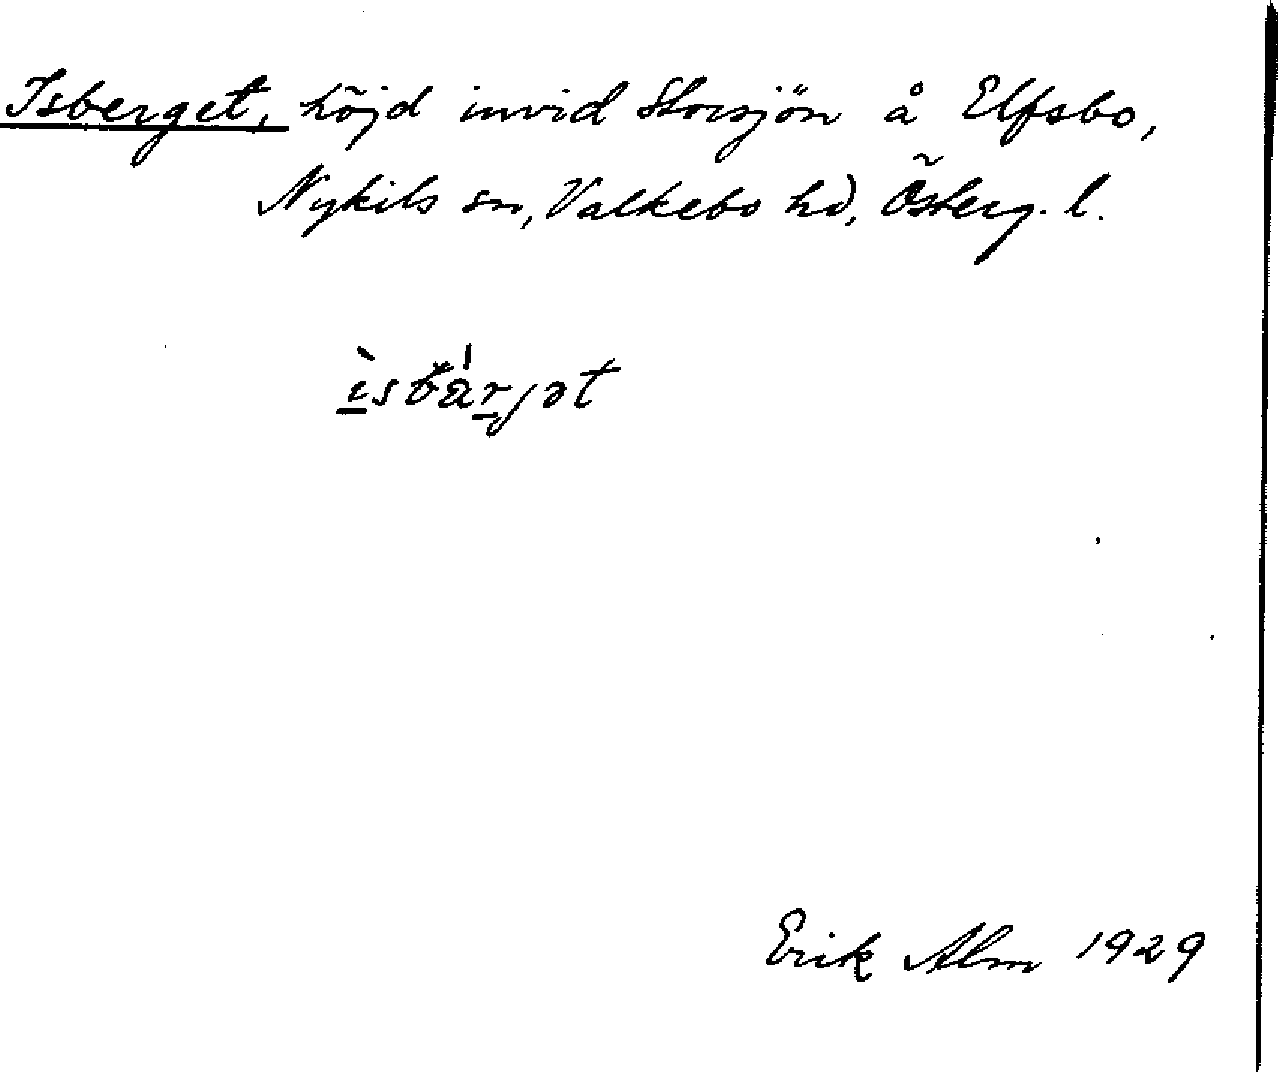 Isberget, höjd invid Storsjön å Elfsbo,
Nykils sn, Valkebo hd, Österg. l.
ìsbárjət
Erik Alm 1929